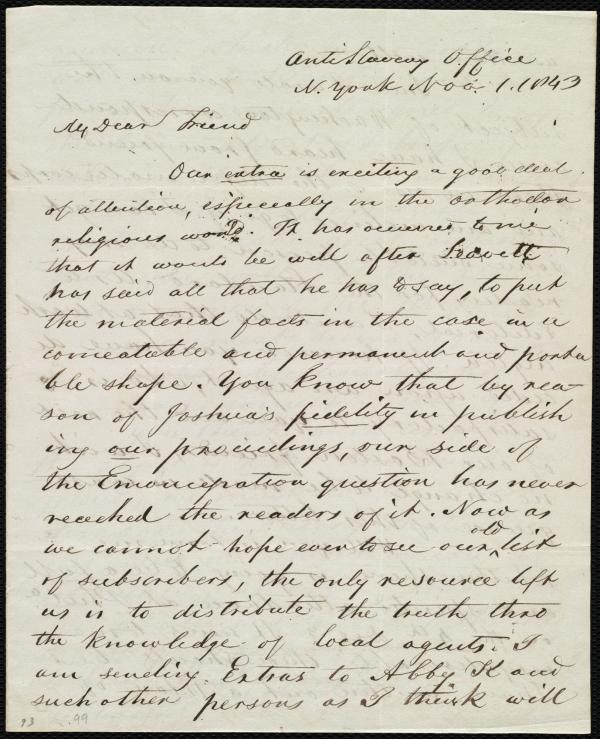 Anti Slavery Office
N. York Nov. 1. 1843
My Dear Friend
Our extra is exciting a good deal
of attention, especially in the orthodox
religious world. It has occurred to me
that it would be well after Leavitt
has said all that he has to say, to put
the material facts in the case in a
comeatable and permanent and porta
ble shape. You know that by rea-
son of Joshua's fidelity in publish
ing our proceedings, our side of
the Emancipation question has never
reached the readers of it. Now as
we cannot hope ever to see our old list
of subscribers, the only resource left
us is to distribute the truth thro
the knowledge of local agents. I
am sending Extras to Abby K and
such other persons as I think will
93 .99